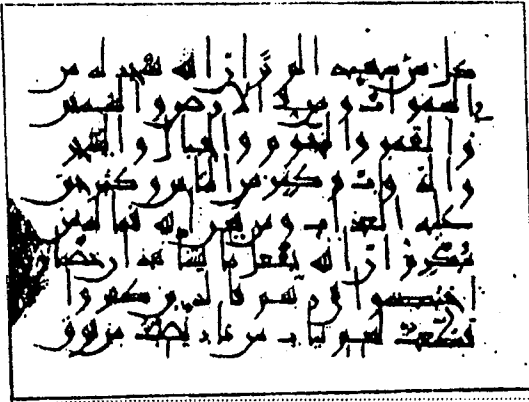 كل شى شهيد الم تر ان الله يسجد له من
فى السموات ومن فى الارض والشمس
والقمر والنجوم والجبال والشجر
والدواب وكثير من الناس وكثير حق
عليه العذاب ومن يهن الله فما له من
مكرم ان الله يفعل ما يشا هذان خصمان
اختصموا فى ربهم فالذين كفروا
قطعت لهم ثياب من نار يصب من فوق